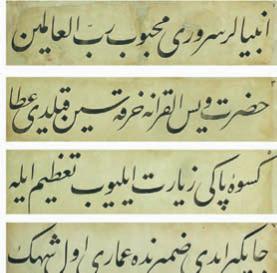 انبیالر سروری محبوب رب العالمین
حضرت ویس القرانه خرقه سین قیلدی عطا
کسوهٔ پاکی زیارت ایلیوب تعظیم ایله
جایکیر ایدی ضمیرنده عماری اول شهک